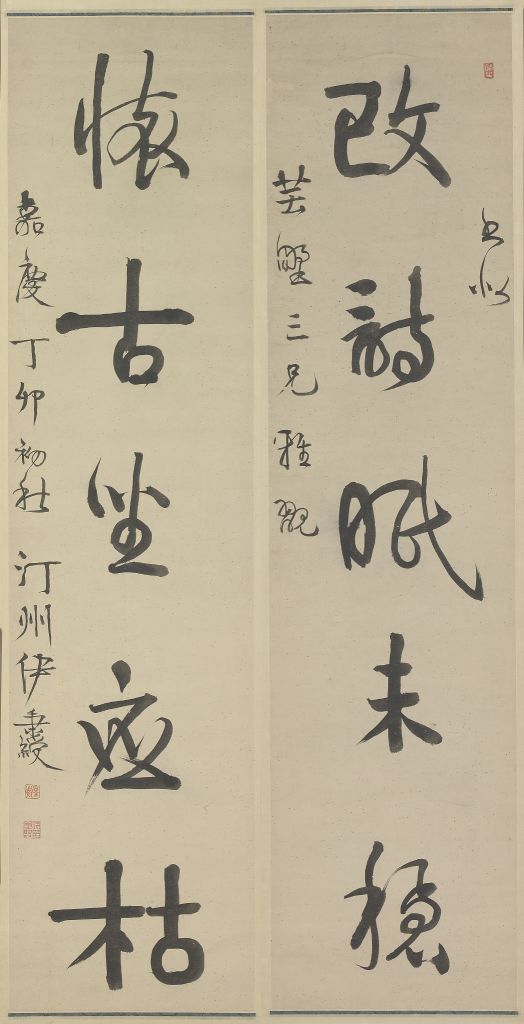 書似
改詩眠未穩
芸墅三兄雅
懷古坐應枯
嘉慶丁卯初秋 汀州伊秉綬